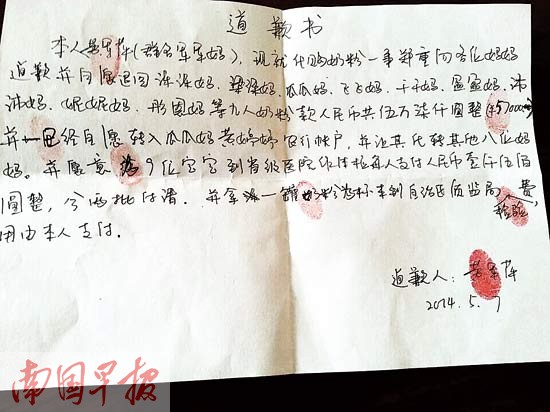 道歉书
本人（群名军军妈），现就代购奶粉一事郑重向各位妈妈
道歉并自愿退回涂涂妈、梁滦妈、瓜瓜妈、飞飞妈、千千妈、盈盈妈、沐
沐妈、妮妮妈、彤圆妈等九人奶粉款人民币共伍万柒仟圆整（¥57000
并已经自愿转入瓜瓜妈黄婷婷银行帐户，并让其代转其他八位妈
妈。并愿意为9位宝宝到省级医院体检每人支付人民币壹仟伍佰
圆整，分两批付清。并拿一罐奶粉送标本到自治区质监局检验，费
用由本人支付。
道歉人：
2014.5.7
南国早报